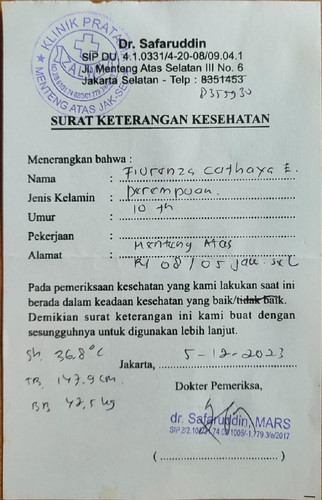 KLINIK PRATAMA
MENTENG ATAS JAK-SEL
Dr. Safaruddin
SIP DU. 4.1.0331/4-20-08/09.04.1
Jl. Menteng Atas Selatan III No. 6
Jakarta Selatan - Telp : 8351453
8355930
SURAT KETERANGAN KESEHATAN
Menerangkan bahwa :
Nama : Fiorenza Cathaya E.
Jenis Kelamin : perempuan
Umur : 10 th
Pekerjaan :
Alamat : Menteng Atas
Rt 08/05 jak-sel
Pada pemeriksaan kesehatan yang kami lakukan saat ini
berada dalam keadaan kesehatan yang baik/tidak baik.
Demikian surat keterangan ini kami buat dengan
sesungguhnya untuk digunakan lebih lanjut.
Sh. 36.8°C
Jakarta, 5-12-2023
TB. 147.9 cm.
Dokter Pemeriksa,
BB 42,5 kg
dr. Safaruddin, MARS